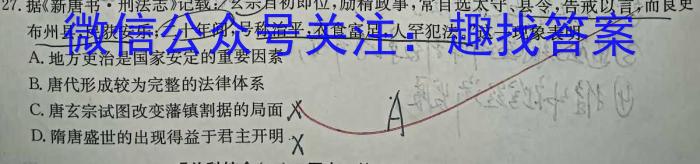 27.据《新唐书·刑法志》记载:“玄宗自初即位,励精政事,常自选太守、县令,告戒以言,而良吏
布州县,民获安乐,二十年间,号称治平,衣食富足,人罕犯法。”这一现象表明
微信公众号关注:趣找答案
A. 地方吏治是国家安定的重要因素
B. 唐代形成较为完整的法律体系
C. 唐玄宗试图改变藩镇割据的局面 X
A
D. 隋唐盛世的出现得益于君主开明 X